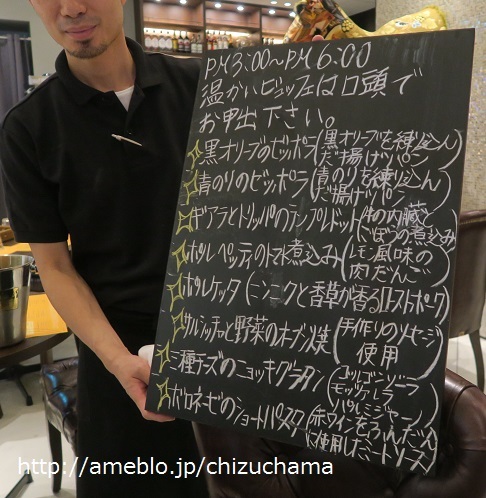 PM3:00～PM6:00
温かいビュッフェは口頭で
お申出下さい。
黒オリーブのゼッポラ(黒オリーブを練り込んだ揚げパン)
青のりのゼッポラ(青のりを練り込んだ揚げパン)
ギアラとトリッパのランプレドット(牛の内臓とごぼうの煮込み)
ポルペッティのトマト煮込み(レモン風味の肉だんご)
ポルケッタ(ニンニクと香草が香るローストポーク)
サルシッチャと野菜のオーブン焼(手作りのソーセージ使用)
三種チーズのニョッキグラタン(ゴルゴンゾーラ モッツァレラ パルミジャーノ)
ボロネーゼのショートパスタ(赤ワインをふんだんに使用したミートソース)
http://ameblo.jp/chizuchama